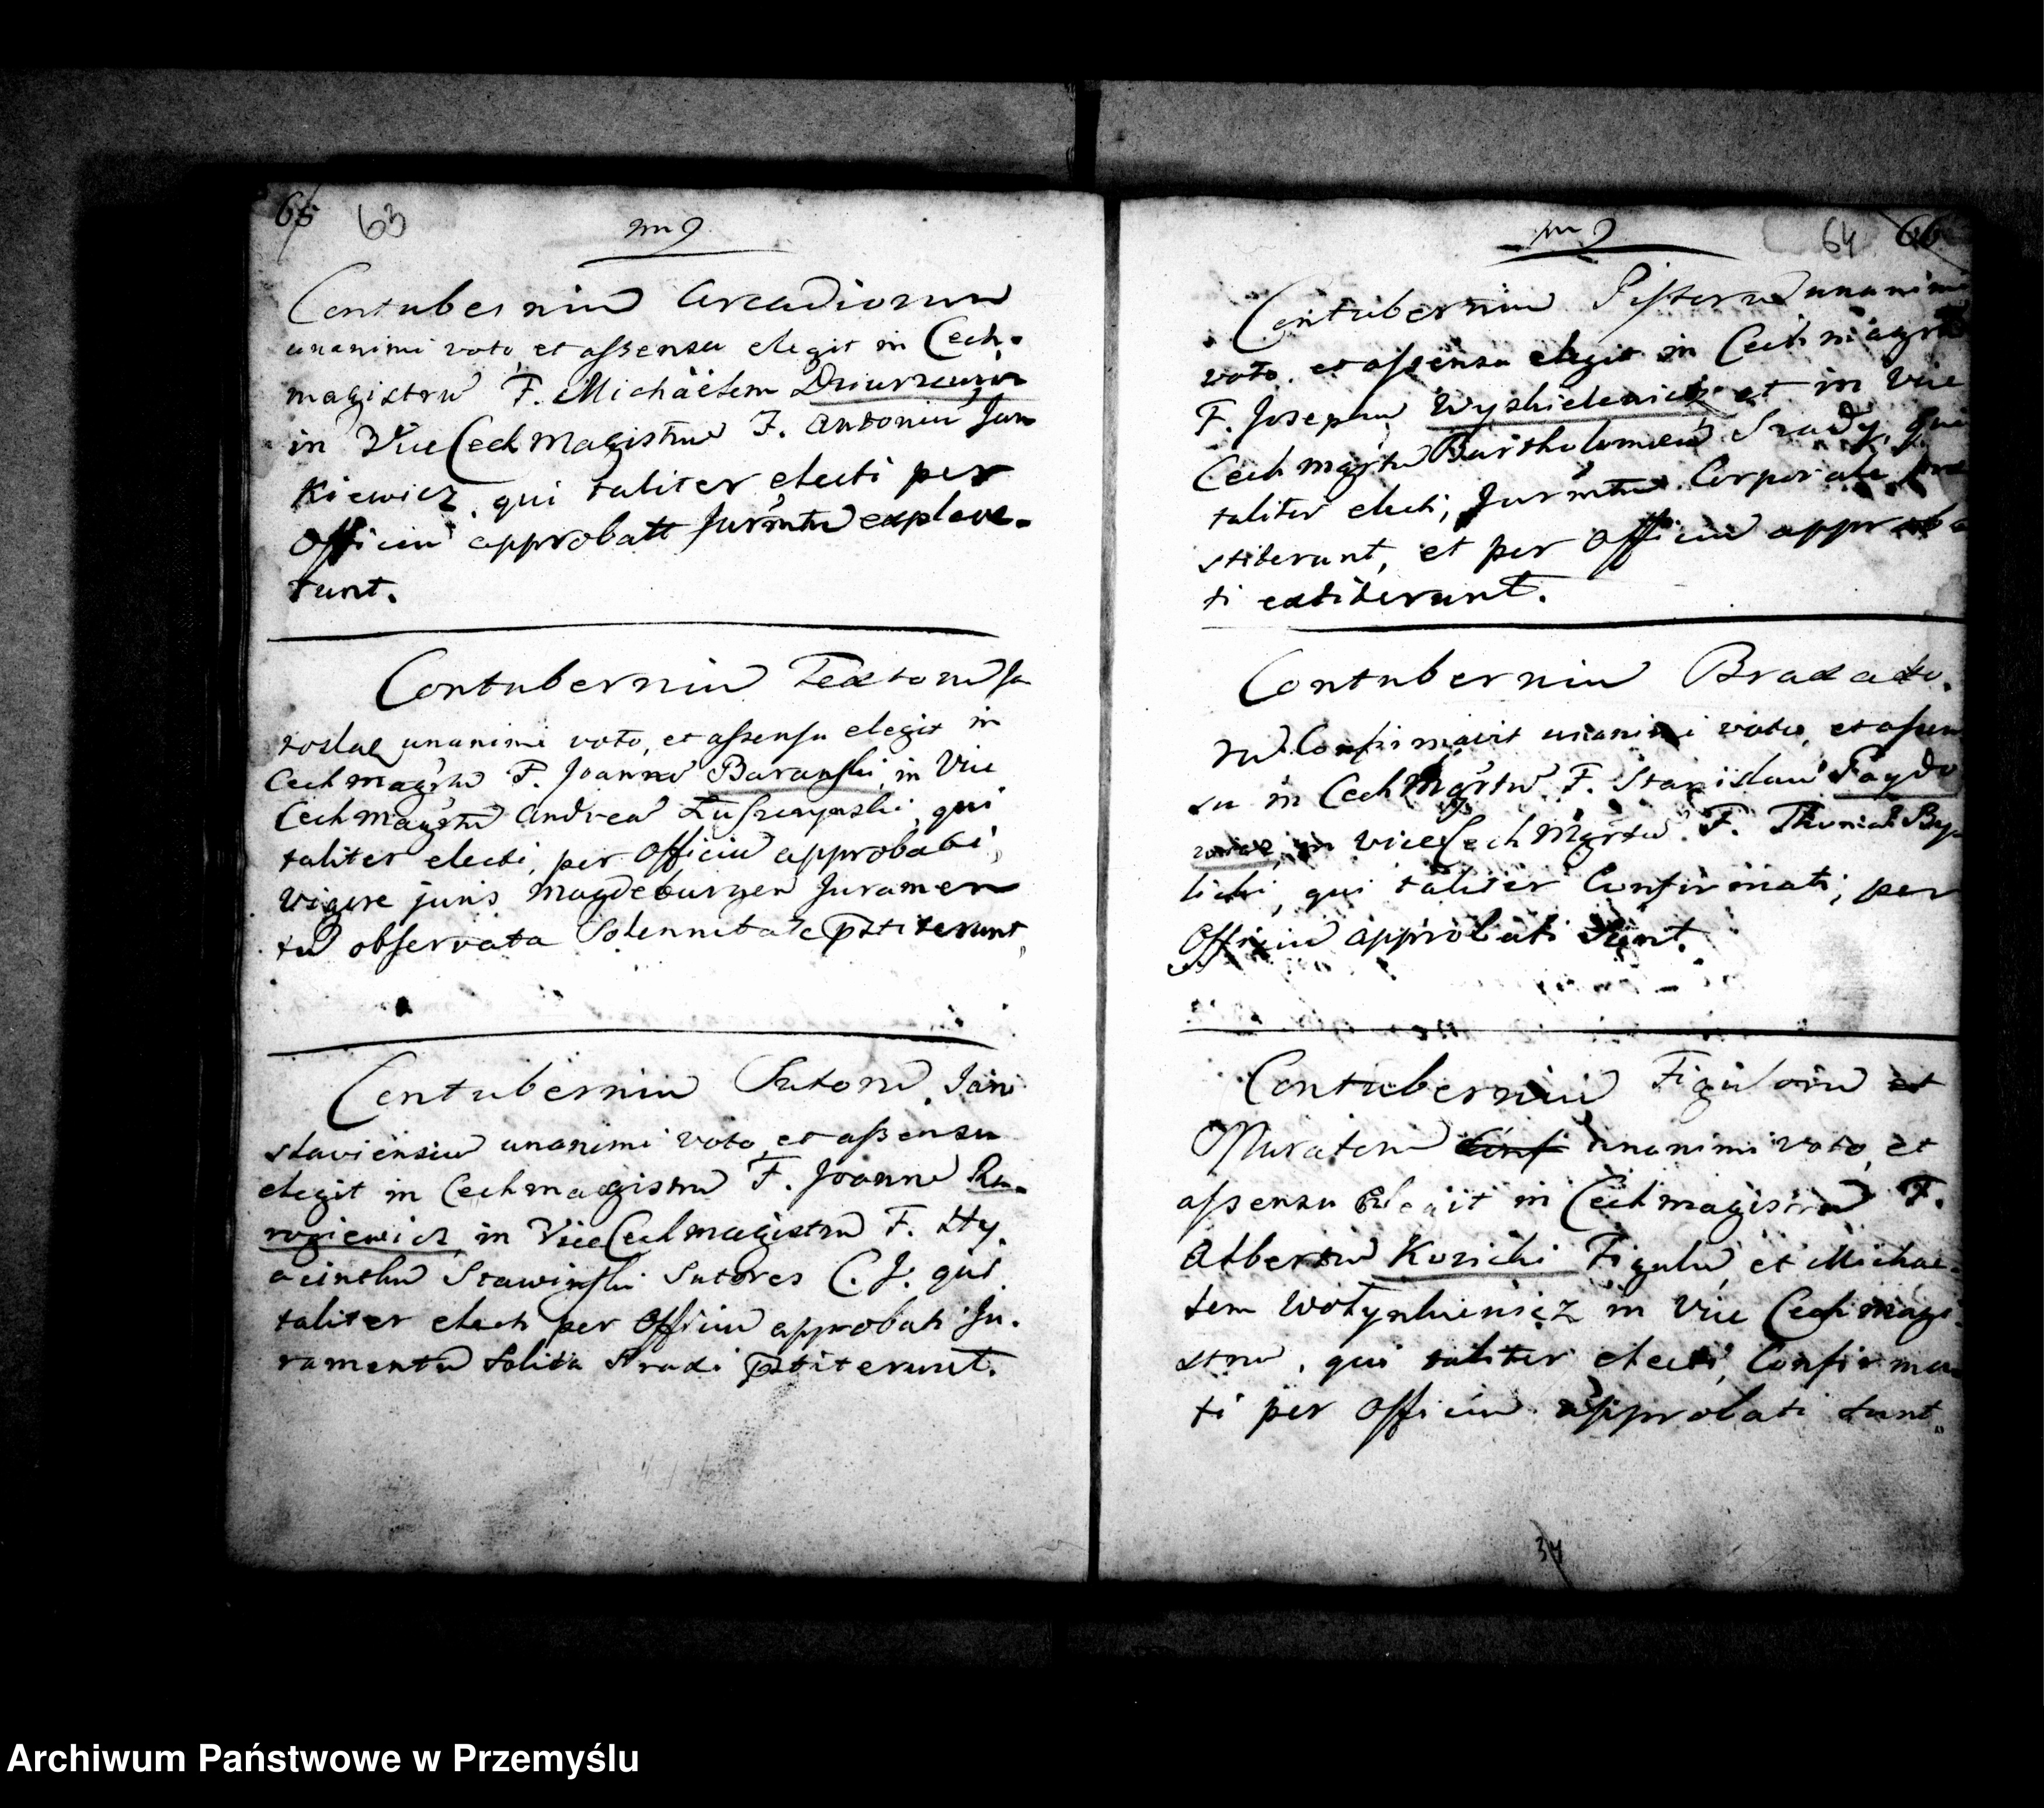 65 63
Contuberniu Arcadiorum
unanimi voto, et assensu elegit in Cech-
magistru F. Michäelem
in Vice Cech Magistru F. Antoniu Jan
kiewicz, qui taliter electi per
Officiu approbati Jurmtu expleve-
runt.
Contuberniu Textoru Ja
roslae unanimi voto, et assensu elegit in
Cechmagrtu F. Joannē Baranski, in Vice
Cechmagrtu Andreā, qui
taliter electi, per Officiu approbati,
vigore juris Magdeburgen Juramen
tu observata Solennitate pstiterunt,
Contuberniu Sutoru Jaro
slaviensiu unanimi voto, et assensu
elegit in Cechmagistru F. Joanne Ru-
rogiewicz, in Vice Cechmagistru F. Hy-
acinthu Stawinski Sutores C. J. qui
taliter electi per Officiu approbati Ju-
ramentu Solita praxi pstiterunt.
64 66
Contuberniu Pistoru unanimi
voto, et assensu elegit in Cechmagrtu
F. Josephu Wyskielewicz et in Vice
Cechmgrtu Bartholomeu Srady, qui
taliter electi, Jurmtu Corporale prae
stiterunt, et per Officiu approba
ti extiterunt.
Contuberniu Braxato-
ru Confirmavit unanimi voto, et assen
su in Cechmgrtu F. Stanislau
in vice Cechmgrtu F. Thomā
licki, qui taliter Confirmati, per
Officiu approbati sunt.
Contuberniu Figuloru et
Muratoru unanimi voto, et
assensu Elegit in Cechmagistru F.
Albertu Kozicki Figulu, et Michae-
lem Wołynkiewicz in Vice Cechmagi-
stru, qui taliter electi, Confirma
ti per Officiu approbati sunt.
34
Archiwum Państwowe w Przemyślu